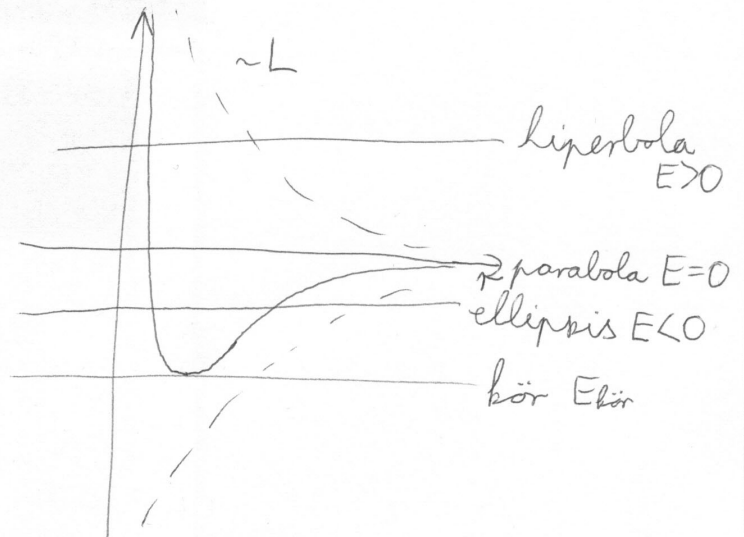 ~L
hiperbola
E>0
parabola E=0
ellipsis E<0
kör Ekör